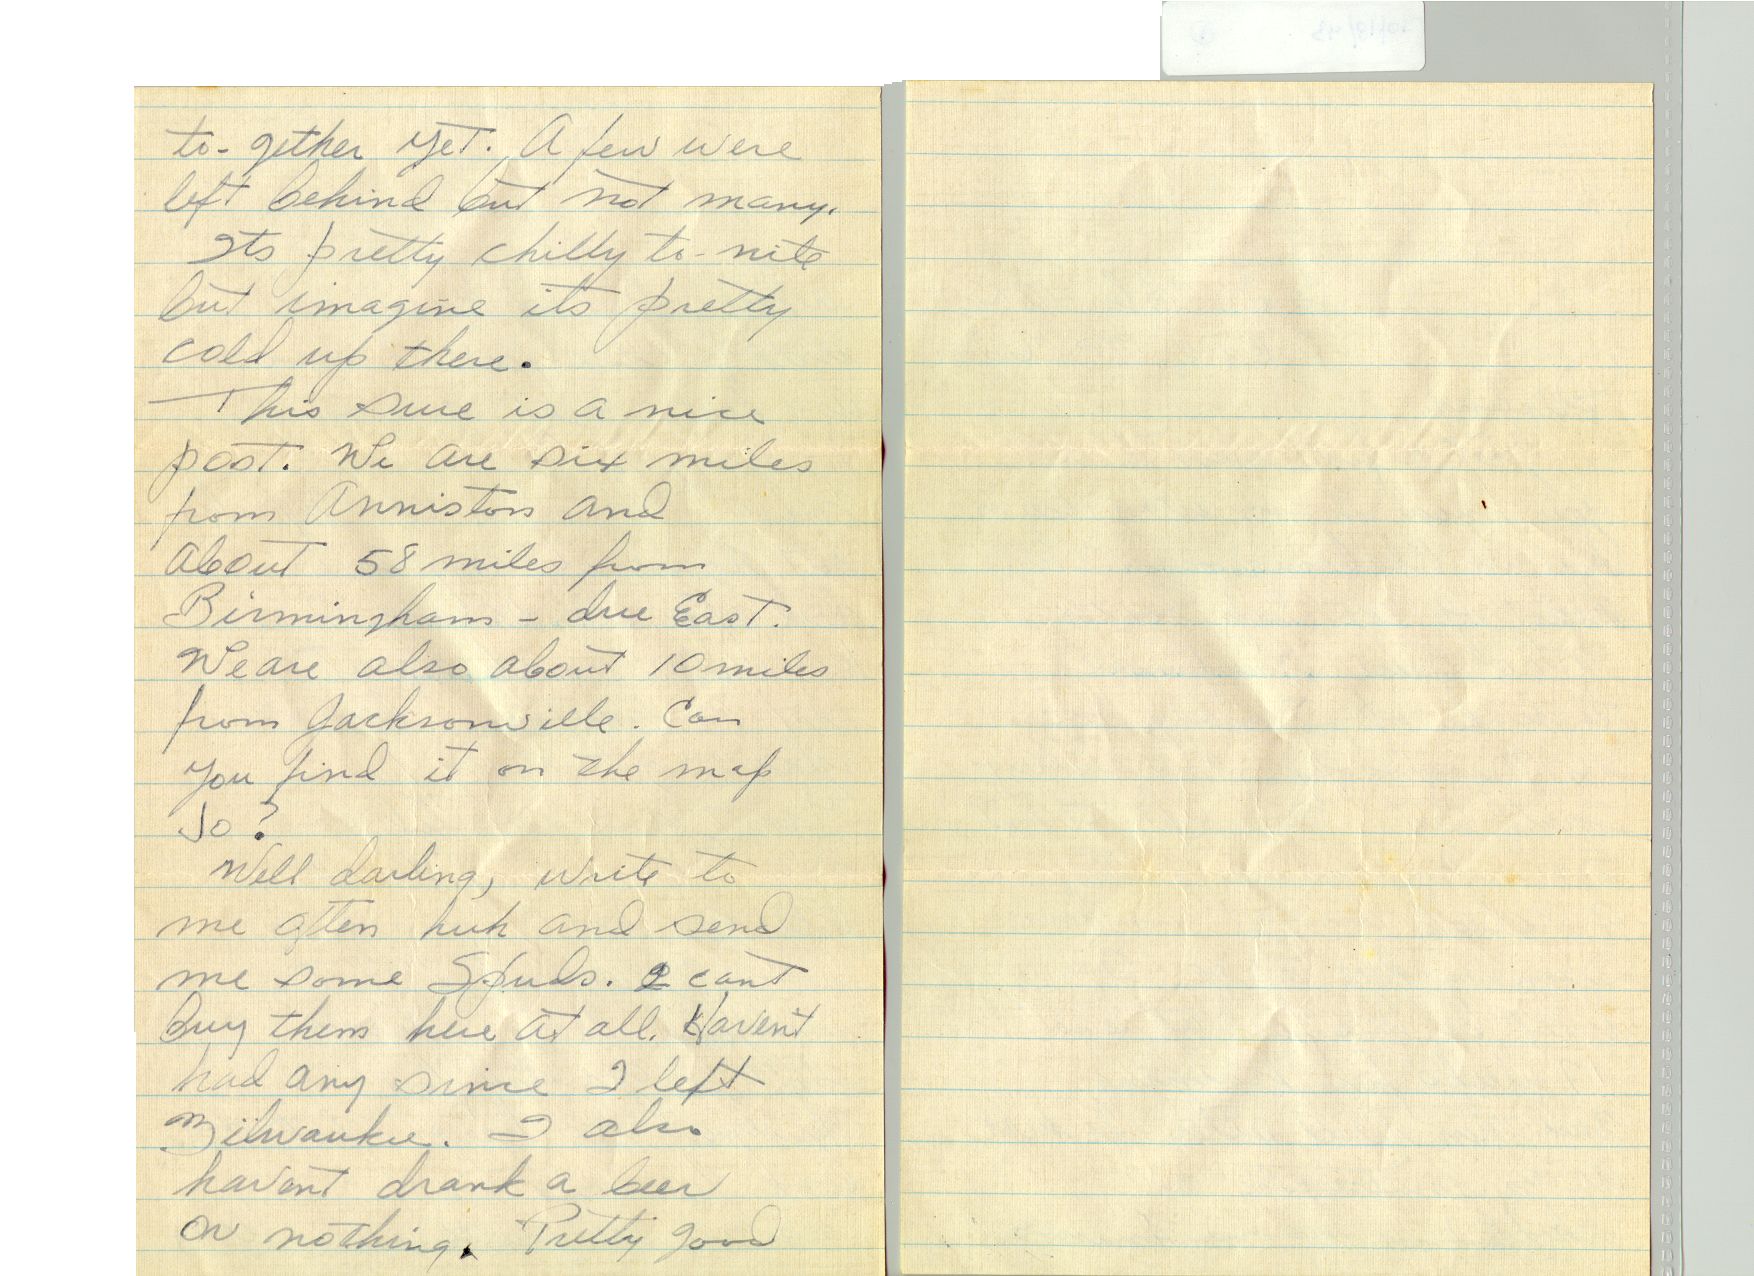 to-gether yet. A few were
left behind but not many.
Its pretty chilly to-nite
but imagine its pretty
cold up there.
This sure is a nice
post. We are six miles
from Anniston and
about 58 miles from
Birmingham - due East.
We are also about 10 miles
from Jacksonville. Can
you find it on the map
Jo?
Well darling, write to
me often huh and send
me some Spuds. I cant
buy them here at all. Haven't
had any since I left
Milwaukee. I also
haven't drank a beer
or nothing. Pretty good